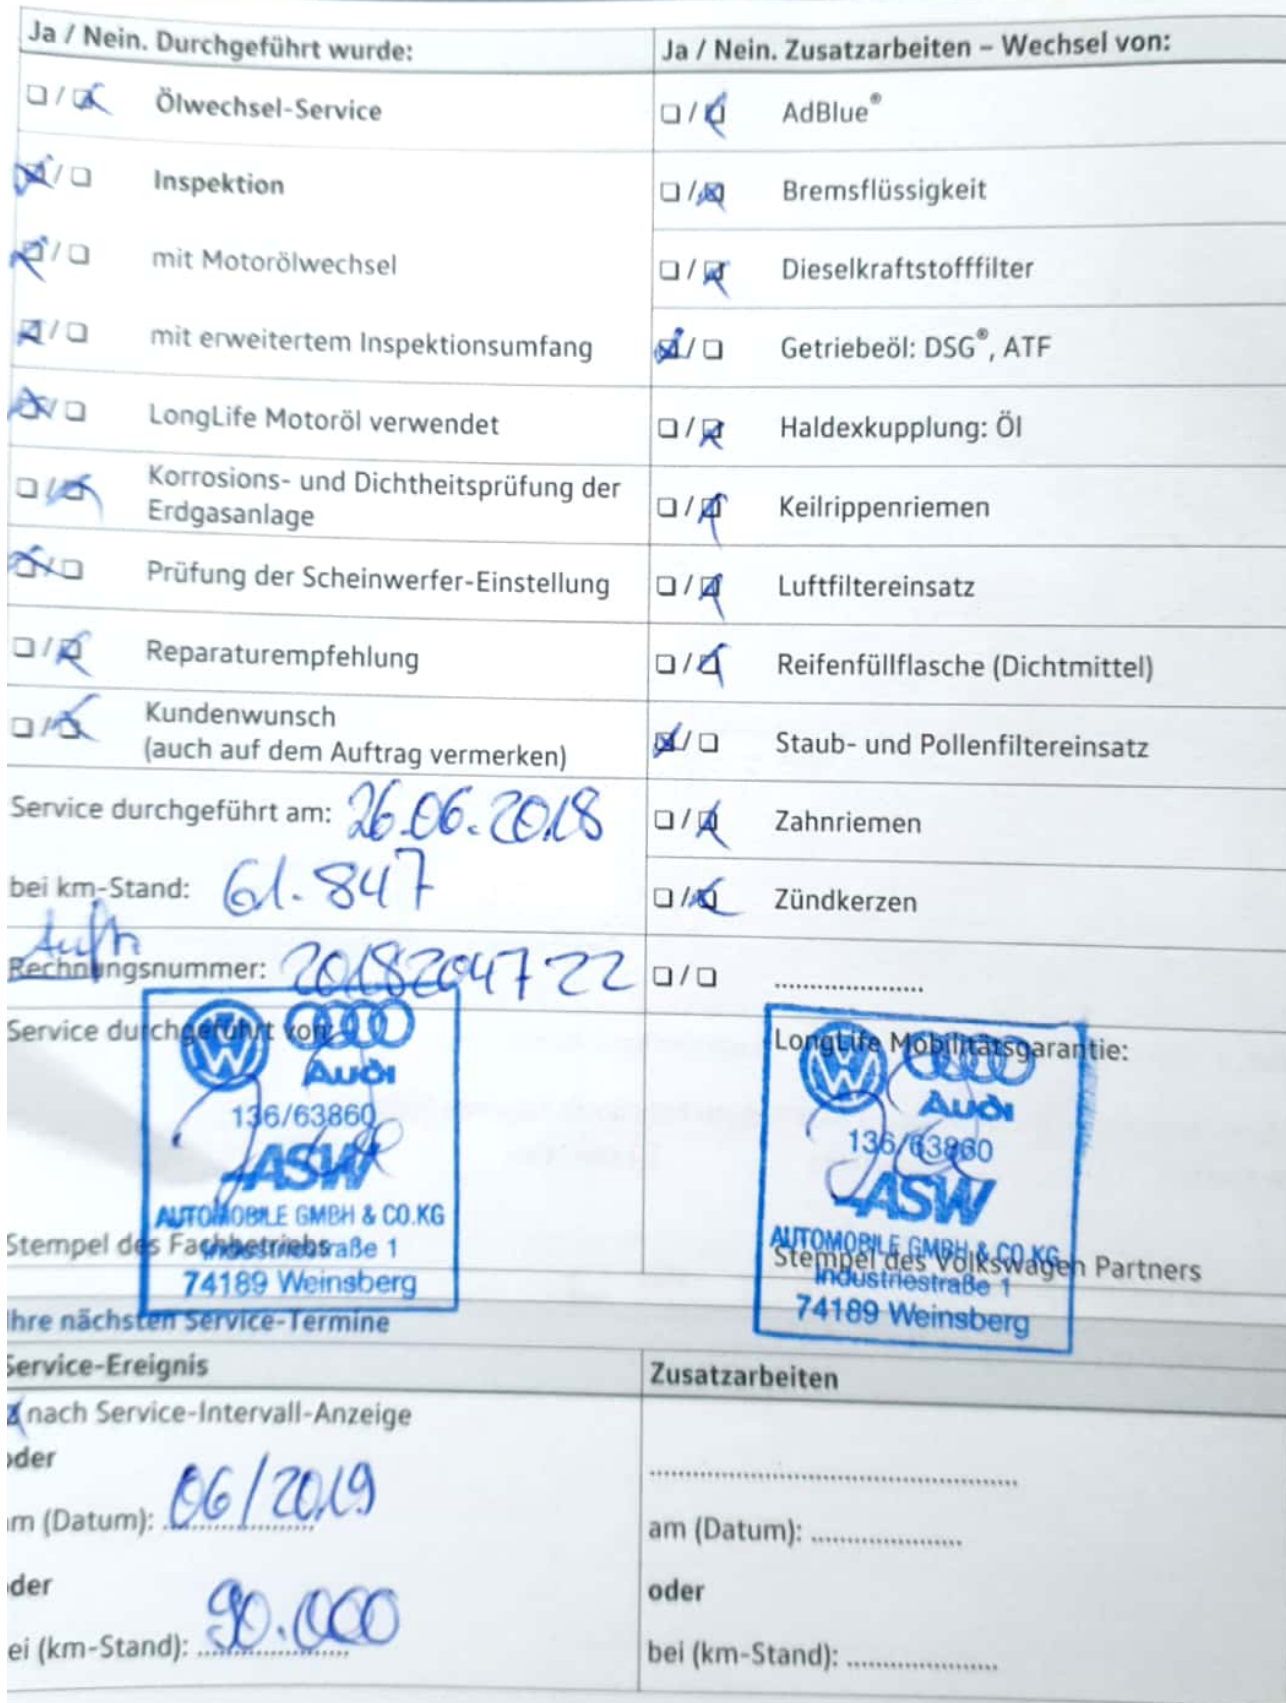 Ja / Nein. Durchgeführt wurde:
Ölwechsel-Service
Inspektion
mit Motorölwechsel
mit erweitertem Inspektionsumfang
LongLife Motoröl verwendet
Korrosions- und Dichtheitsprüfung der
Erdgasanlage
Prüfung der Scheinwerfer-Einstellung
Reparaturempfehlung
Kundenwunsch
(auch auf dem Auftrag vermerken)
Service durchgeführt am: 26.06.2018
bei km-Stand: 61.847
Auftr
Rechnungsnummer: 2018204722
Service durchgeführt von:
Audi
136/63860
ASW
AUTOMOBILE GMBH & CO.KG
Industriestraße 1
Stempel des Fachbetriebs
74189 Weinsberg
Ja / Nein. Zusatzarbeiten – Wechsel von:
AdBlue®
Bremsflüssigkeit
Dieselkraftstofffilter
Getriebeöl: DSG®, ATF
Haldexkupplung: Öl
Keilrippenriemen
Luftfiltereinsatz
Reifenfüllflasche (Dichtmittel)
Staub- und Pollenfiltereinsatz
Zahnriemen
Zündkerzen
....................
LongLife Mobilitätsgarantie:
Audi
136/63860
ASW
AUTOMOBILE GMBH & CO.KG
Stempel des Volkswagen Partners
Industriestraße 1
74189 Weinsberg
hre nächsten Service-Termine
Service-Ereignis
nach Service-Intervall-Anzeige
oder
m (Datum): 06/2019
der
ei (km-Stand): 90.000
Zusatzarbeiten
....................
am (Datum): ....................
oder
bei (km-Stand): ....................